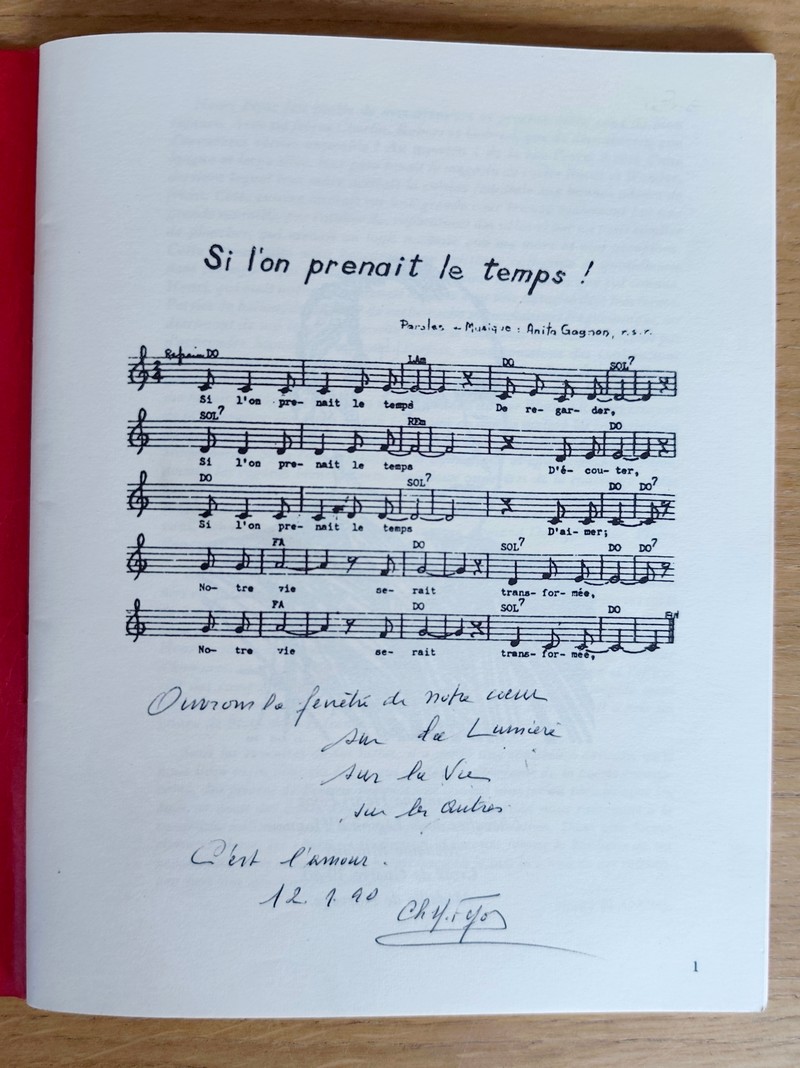 Si l'on prenait le temps !
Paroles - Musique : Anita Gagnon, r.s.r.
Refrain DO LAm DO SOL7
Si l'on pre- nait le temps De re- gar- der,
SOL7 REm DO
Si l'on pre- nait le temps D'é- cou- ter,
DO SOL7 DO DO7
Si l'on pre- nait le temps D'ai- mer;
FA DO SOL7 DO DO7
No- tre vie se- rait trans- for- mée,
FA DO SOL7 DO FIN
No- tre vie se- rait trans- for- mée,
Ouvrons la fenêtre de notre cœur
sur la Lumière
sur la Vie
sur les autres
C'est l'amour.
12.1.90
1